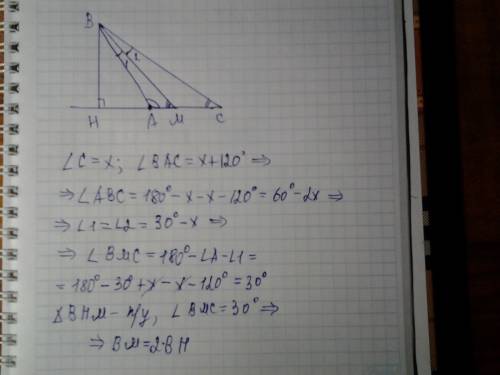 B
1 2
H A M C
∠C = x; ∠BAC = x+120° ⇒
⇒ ∠ABC = 180° − x − x − 120° = 60° − 2x ⇒
⇒ ∠1 = ∠2 = 30° − x ⇒
⇒ ∠BMC = 180° − ∠A − ∠1 =
= 180° − 30° + x − x − 120° = 30°
ΔBHM − п/у, ∠BMC = 30° ⇒
⇒ BM = 2·BH